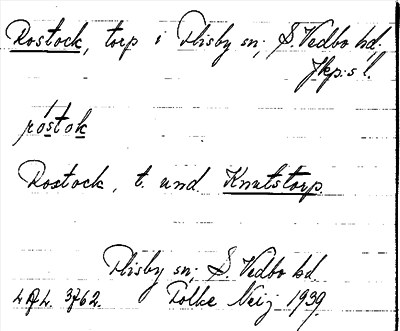 Rostock, torp i Flisby sn; S. Vedbo hd;
Jkp:s l.
róstok
Rostock, t. und. Knutstorp
Flisby sn; S. Vedbo hd.
3762. Folke Neij 1939.